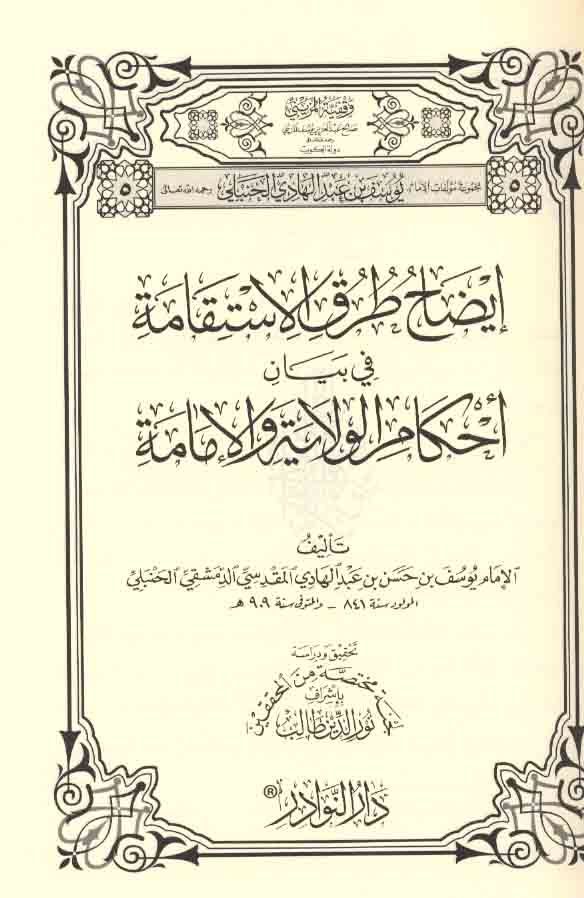 وقفية المزيني
دولة الكويت
٥ مجموعة مؤلفات الإمام يُوسُف بْن عَبْد الهَادِي الحَنبَلي رحمه الله تعالى ٥
إيضَاحُ طُرُقِ الاسْتِقَامَةِ
فِي بَيَانِ
أَحْكَامِ الوِلَايَةِ وَالإِمَامَةِ
تَأليفُ
الإِمَام يُوسُفَ بن حَسَن بن عَبْدِ الهَادِي المَقْدِسِيِّ الدِّمَشْقِيِّ الحَنْبَلِيِّ
المولود سنة ٨٤١ - والمتوفى سنة ٩٠٩ هـ
تحقيق ودراسة
لجنة مختصة من المحققين
بإشراف
نُورُ الدِّين طَالِب
دَارُ النَّوَادِرِ ®